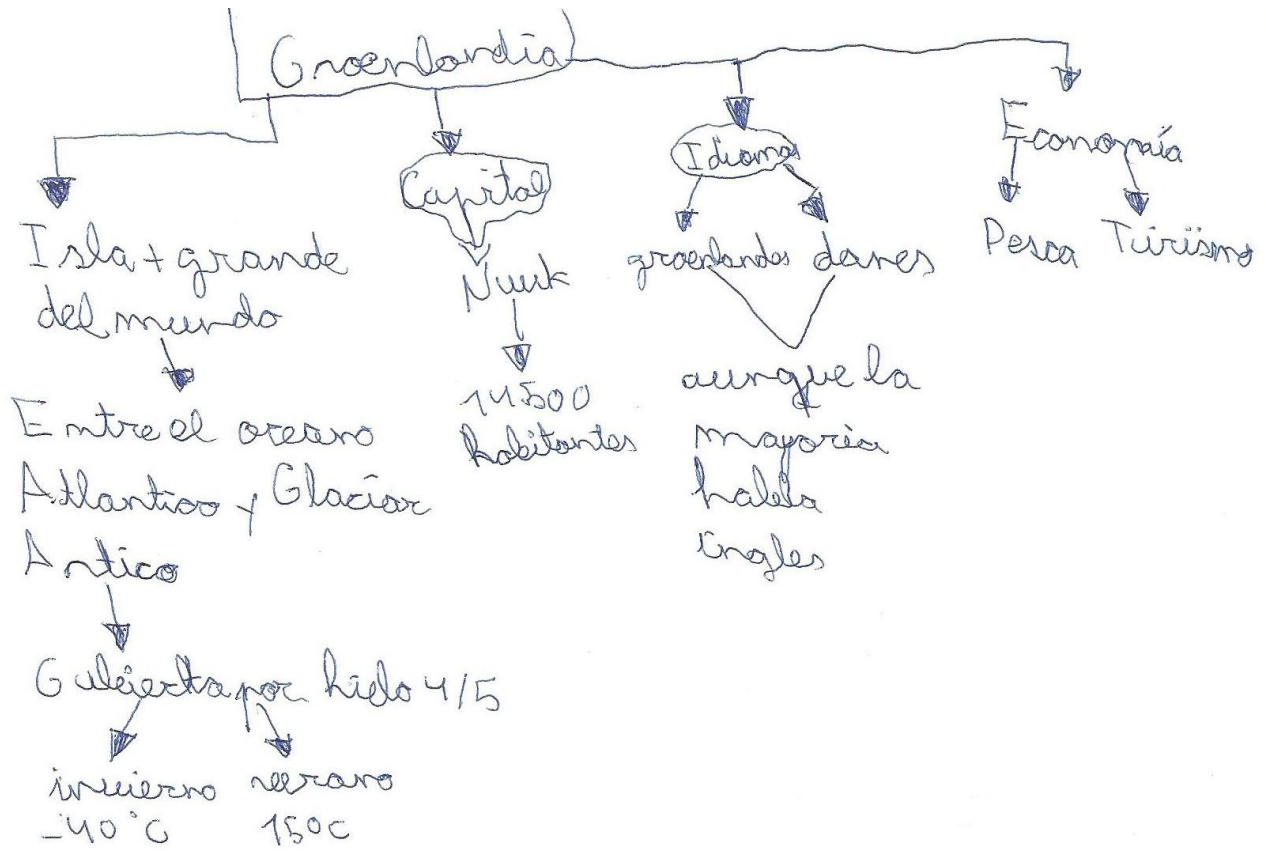 Groenlandia
Isla + grande
del mundo
Entre el oceano
Atlantico y Glaciar
Artico
Cubierta por hielo 4/5
invierno
-40°C
verano
15°C
Capital
Nuuk
14500
habitantes
Idiomas
groenlandes danes
aunque la
mayoria
habla
ingles
Economía
Pesca Turismo